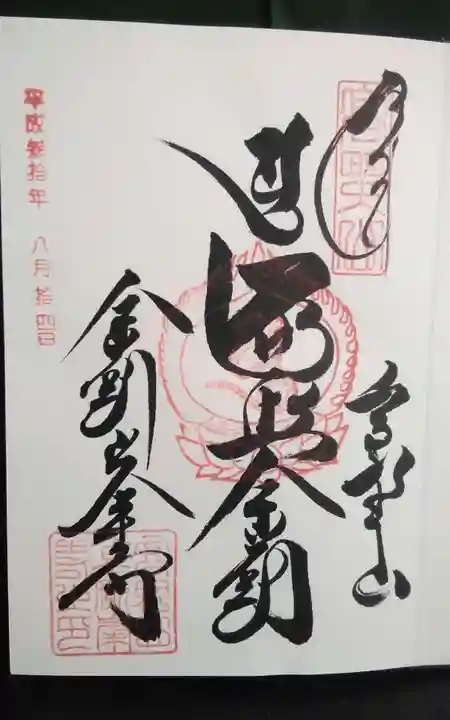 高野山
遍照金剛
金剛峯寺
平成参拾年 八月拾四日